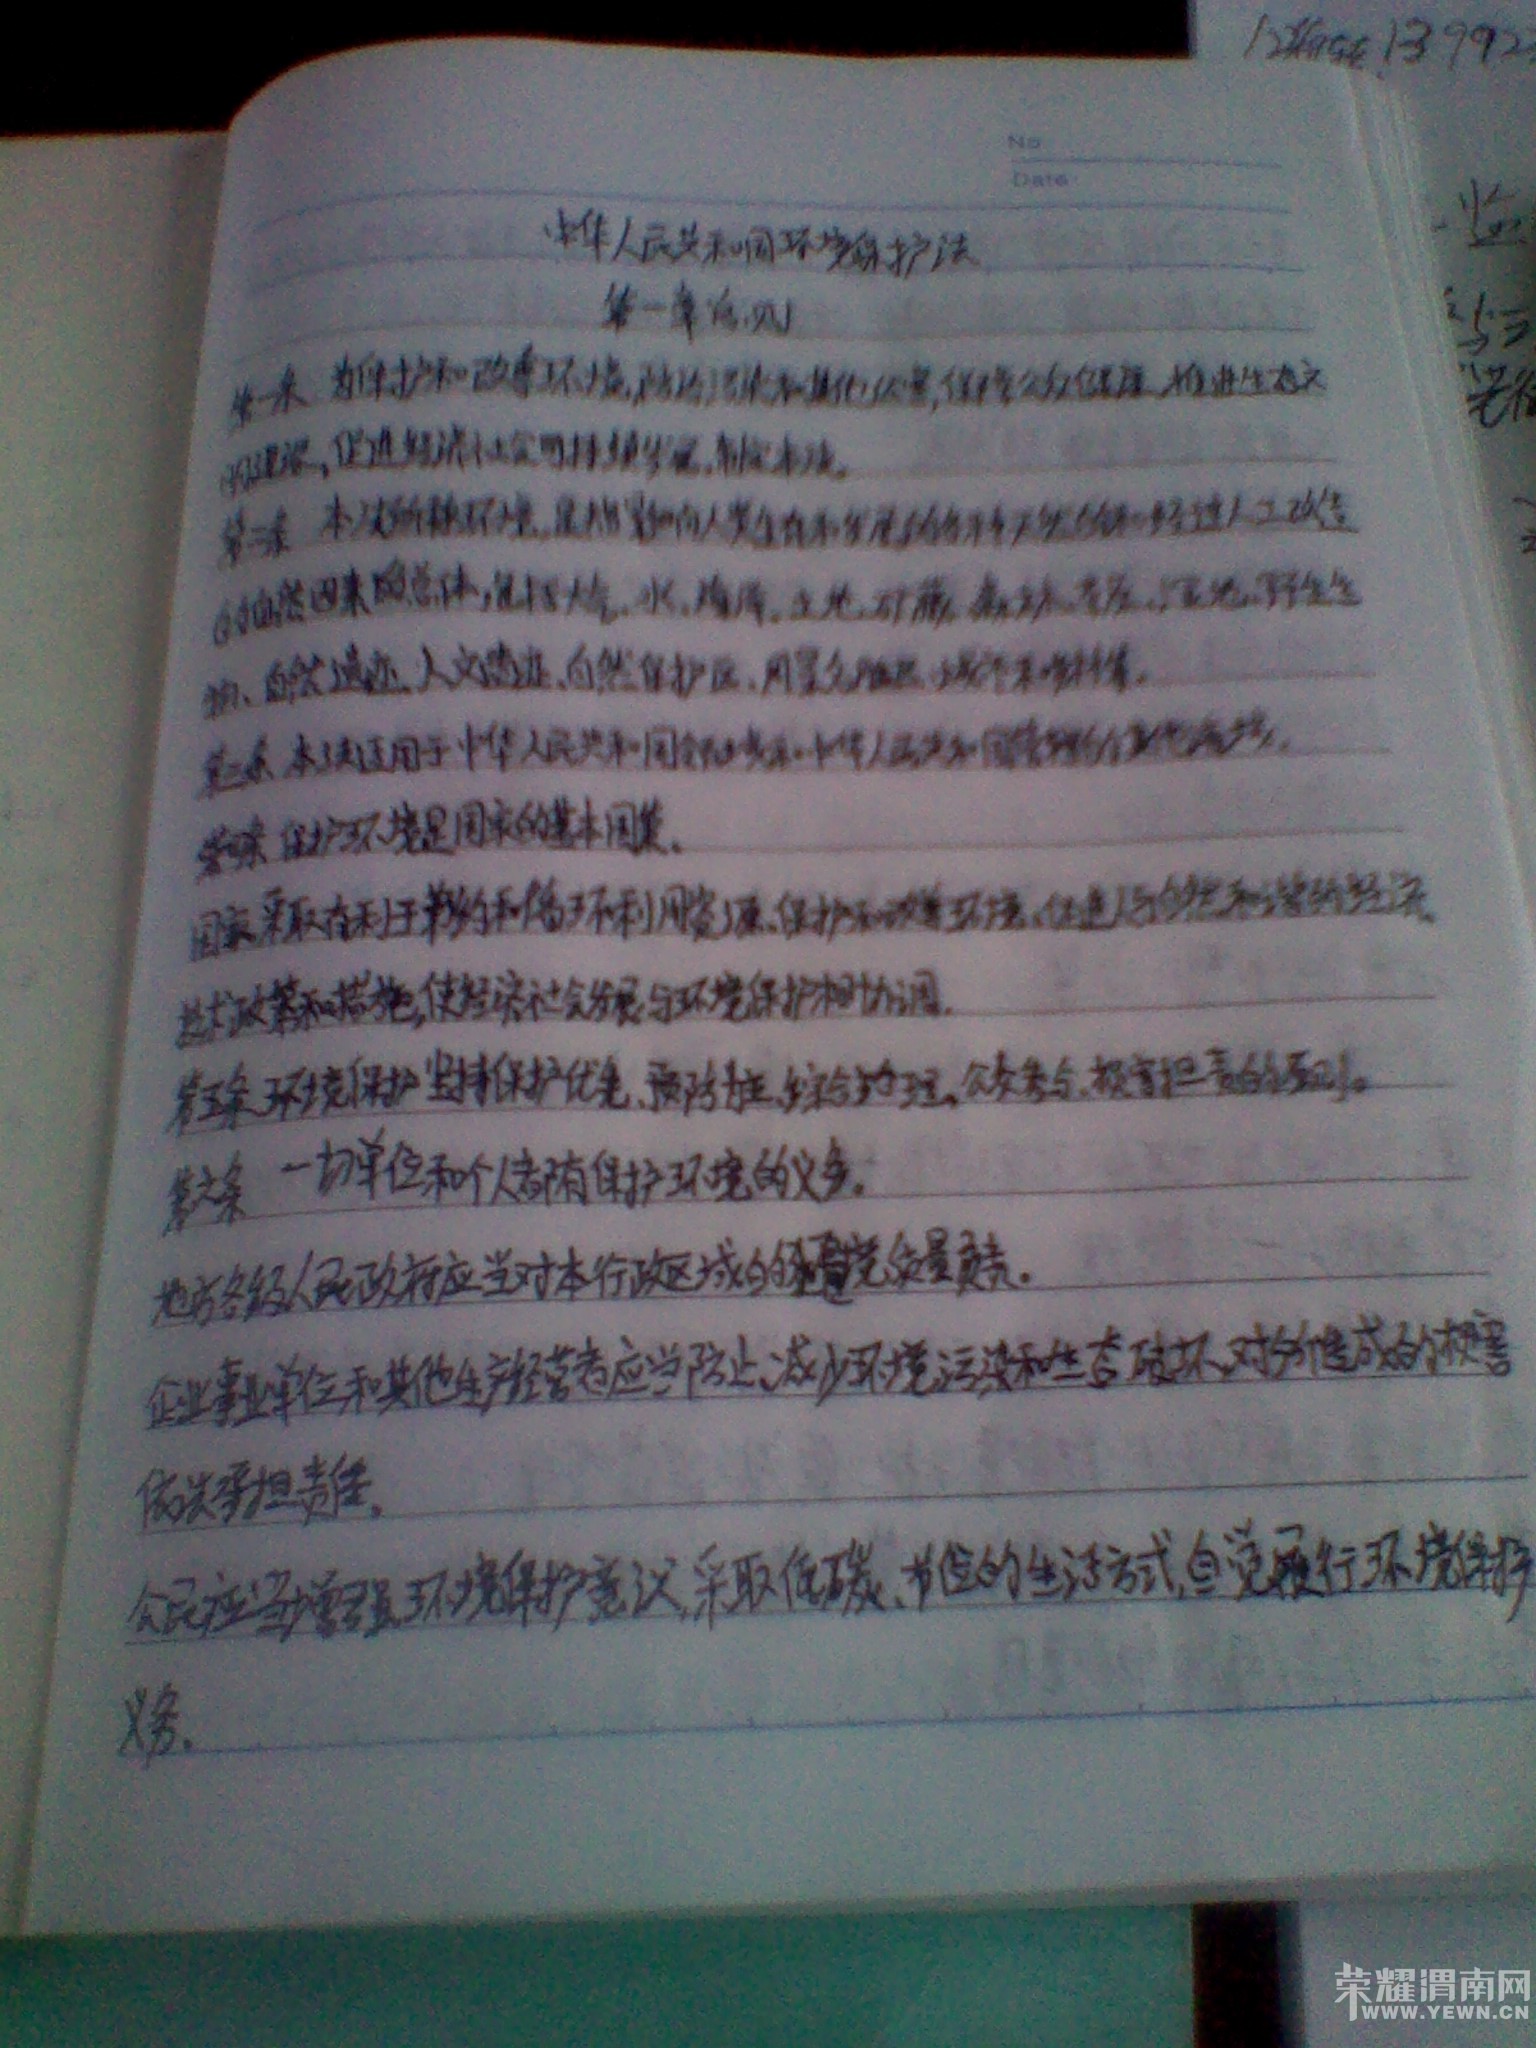 13992
No
Date
中华人民共和国环境保护法
第一章总则
第一条 为保护和改善环境,防治污染和其他公害,保障公众健康,推进生态文
明建设,促进经济社会可持续发展,制定本法。
第二条 本法所称环境,是指影响人类生存和发展的各种天然的和经过人工改造
的自然因素的总体,包括大气、水、海洋、土地、矿藏、森林、草原、湿地、野生生
物、自然遗迹、人文遗迹、自然保护区、风景名胜区、城市和乡村等。
第三条 本法适用于中华人民共和国领域和中华人民共和国管辖的其他海域。
第四条 保护环境是国家的基本国策。
国家采取有利于节约和循环利用资源、保护和改善环境、促进人与自然和谐的经济、
技术政策和措施,使经济社会发展与环境保护相协调。
第五条 环境保护坚持保护优先、预防为主、综合治理、公众参与、损害担责的原则。
第六条 一切单位和个人都有保护环境的义务。
地方各级人民政府应当对本行政区域的环境质量负责。
企业事业单位和其他生产经营者应当防止、减少环境污染和生态破坏,对所造成的损害
依法承担责任。
公民应当增强环境保护意识,采取低碳、节俭的生活方式,自觉履行环境保护
义务。
荣耀渭南网
WWW.YEWN.CN